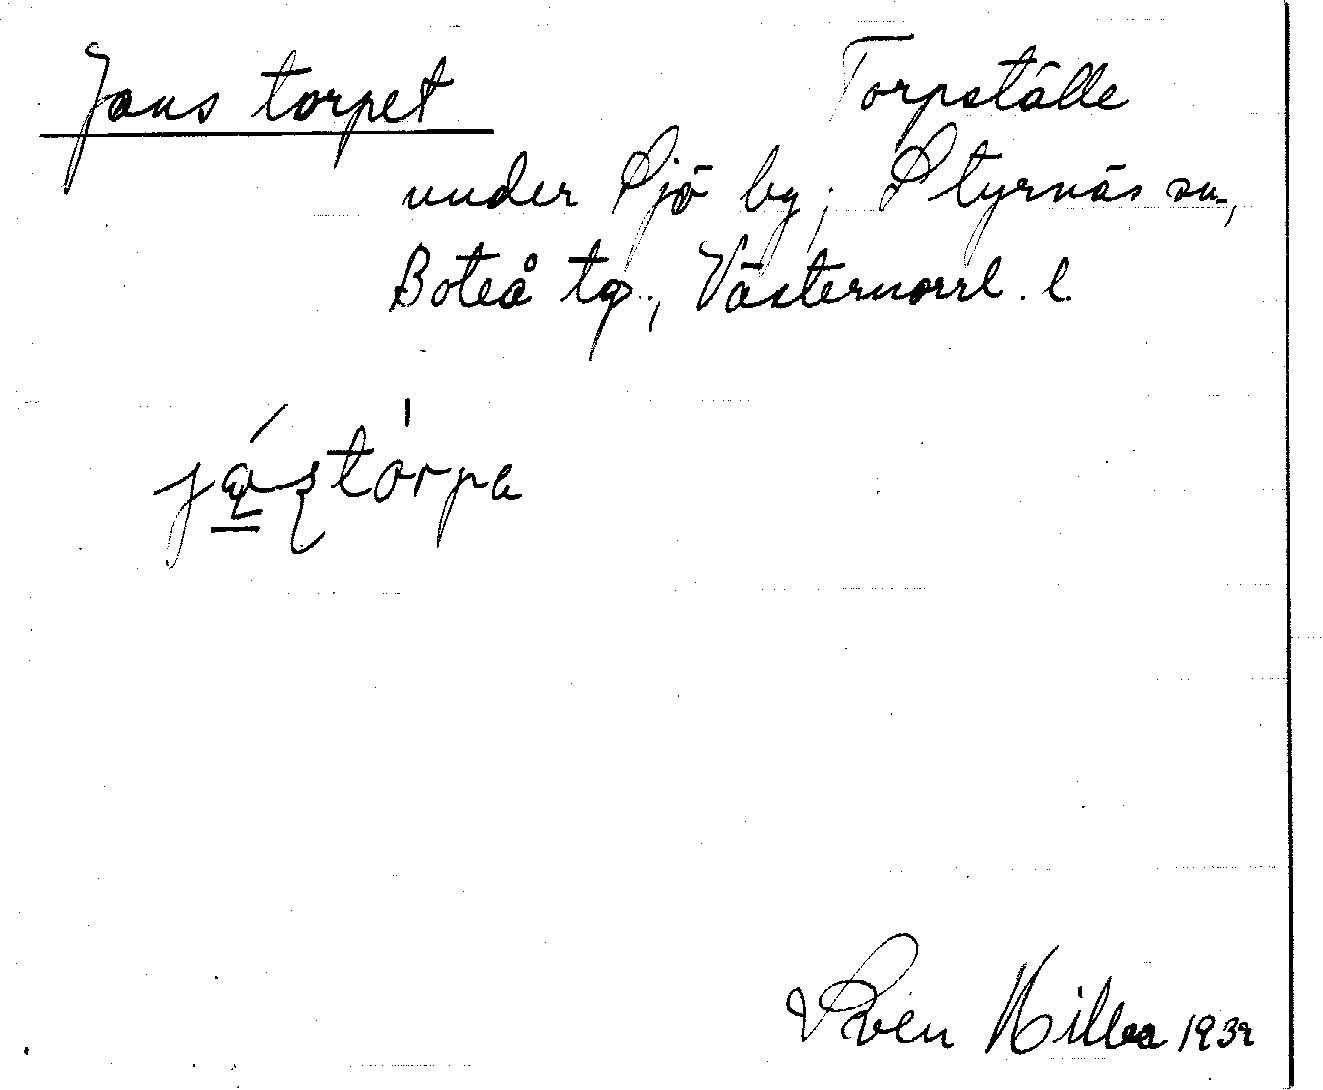 Jans torpet Torpställe
under Sjö by; Styrnäs sn.,
Boteå tg., Västernorrl. l.
Sven 1932